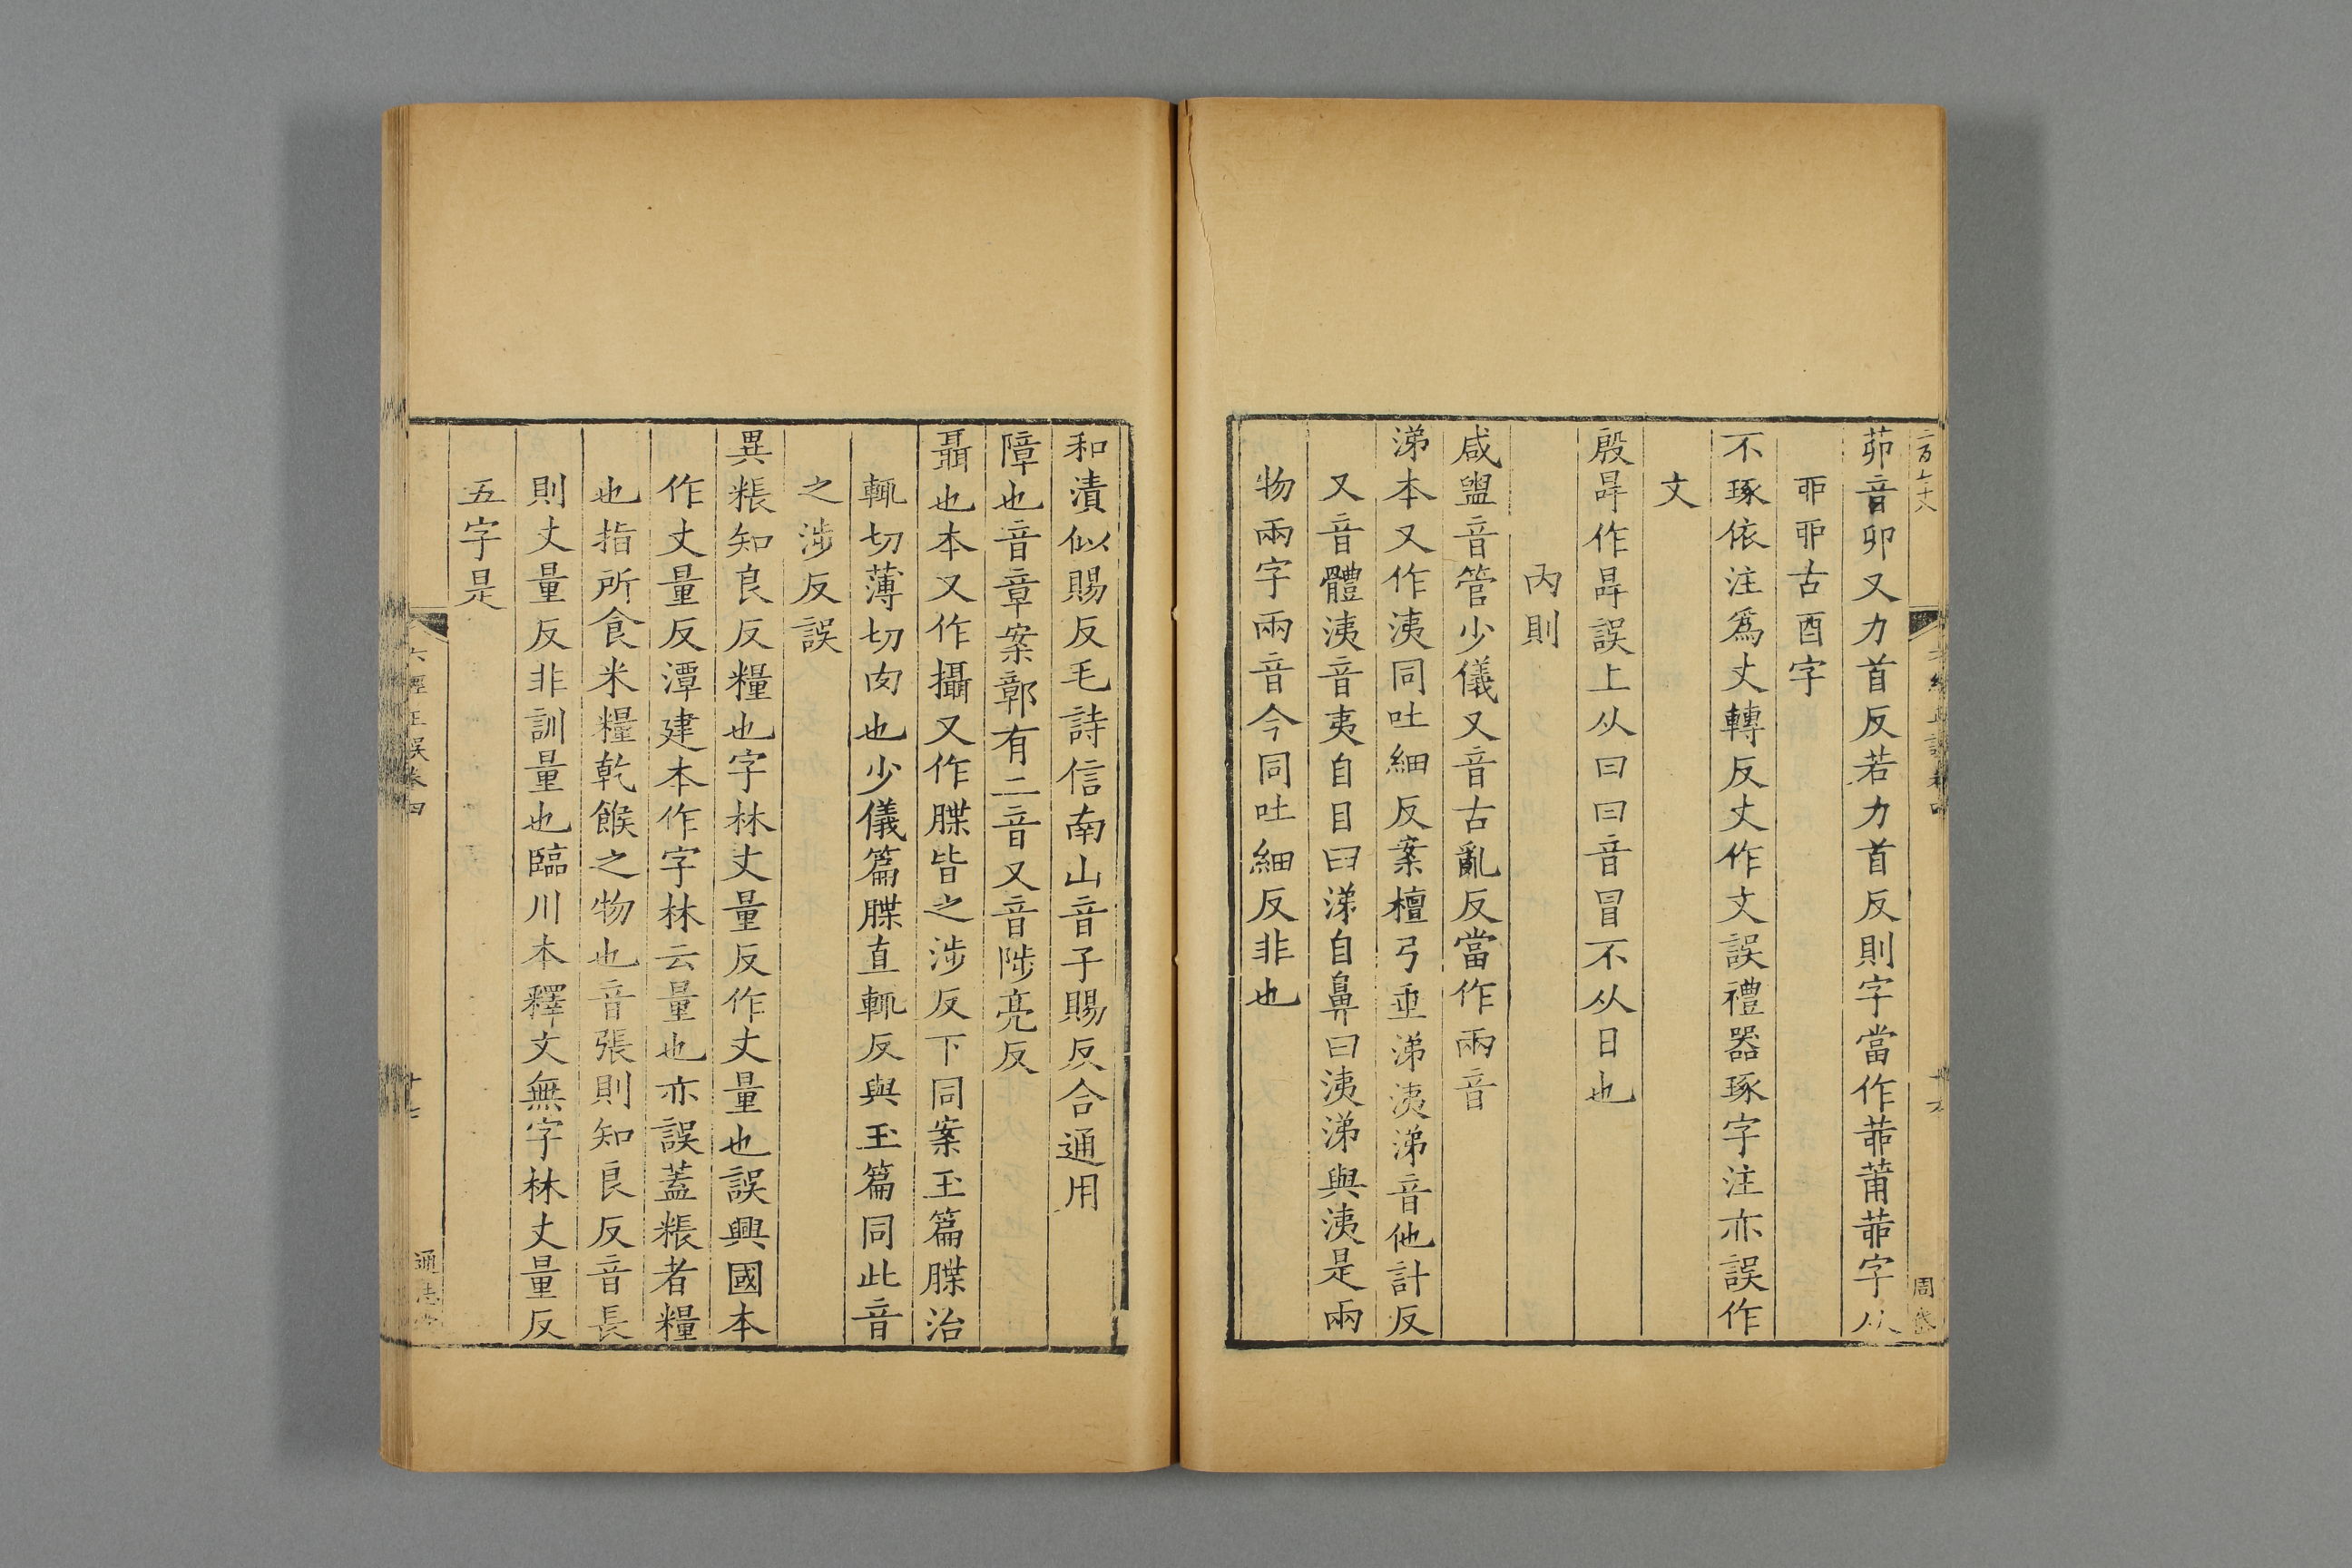 二百七十八
茆音卯又力首反若力首反則字當作茆莆茆字从
丣丣古酉字
不琢依注爲丈轉反丈作文誤禮器琢字注亦誤作
文
殷冔作冔誤上从曰曰音冒不从日也
內則
咸盥音管少儀又音古亂反當作兩音
涕本又作洟同吐細反案檀弓垂涕洟涕音他計反
又音體洟音夷自目曰涕自鼻曰洟涕與洟是兩
物兩字兩音今同吐細反非也
和漬似賜反毛詩信南山音子賜反合通用
障也音章案鄣有二音又音陟亮反
聶也本又作攝又作牒皆之涉反下同案玉篇牒治
輒切薄切肉也少儀篇牒直輒反與玉篇同此音
之涉反誤
異粻知良反糧也字林丈量反作丈量也誤興國本
作丈量反潭建本作字林云量也亦誤蓋粻者糧
也指所食米糧乾餱之物也音張則知良反音長
則丈量反非訓量也臨川本釋文無字林丈量反
五字是
六經正誤卷四
十七
通志堂